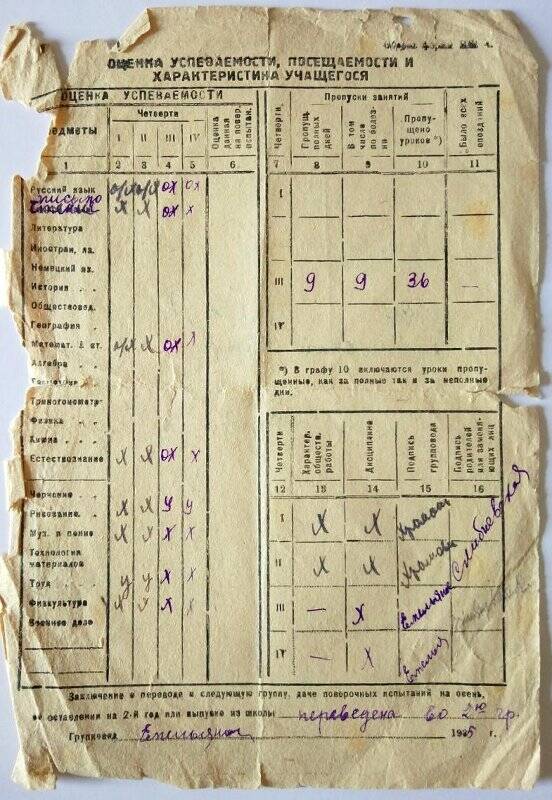 ОЦЕНКА УСПЕВАЕМОСТИ, ПОСЕЩАЕМОСТИ И
ХАРАКТЕРИСТИКА УЧАЩЕГОСЯ
ОЦЕНКА УСПЕВАЕМОСТИ
Четверти
I II III IV
Оценка данная на повер. испытан.
1 2 3 4 5 6
Русский язык ох ох
письмо х х ох х
Литература
Иностран. яз.
Немецкий яз.
История
Обществовед.
География
Математ. ох
Алгебра
Тригонометр
Физика
Химия
Естествознание х х ох х
Черчение
Рисование х х у у
Муз. и пение х х х х
Технология
материалов
Труд у у х х
Физкультура х х х х
Военное дело
Пропуски занятий
Четверти
Пропущ. полных дней
В том числе по болезни
Пропущено уроков *)
Было всех опозданий
7 8 9 10 11
I
III 9 9 36 —
IV
*) В графу 10 включаются уроки пропу-
щенные, как за полные так и за неполные
дни.
Четверти
Характер. обществ. работы
Дисциплина
Подпись групповода
Подпись родителей или заменяющих лиц
12 13 14 15 16
I х х
II х х
III — х
IV — х
Заключение о переводе в следующую группу, даче поверочных испытаний на осень,
оставлении на 2-й год или выпуске из школы переведена во 2ю гр.
Групповод 1935 г.